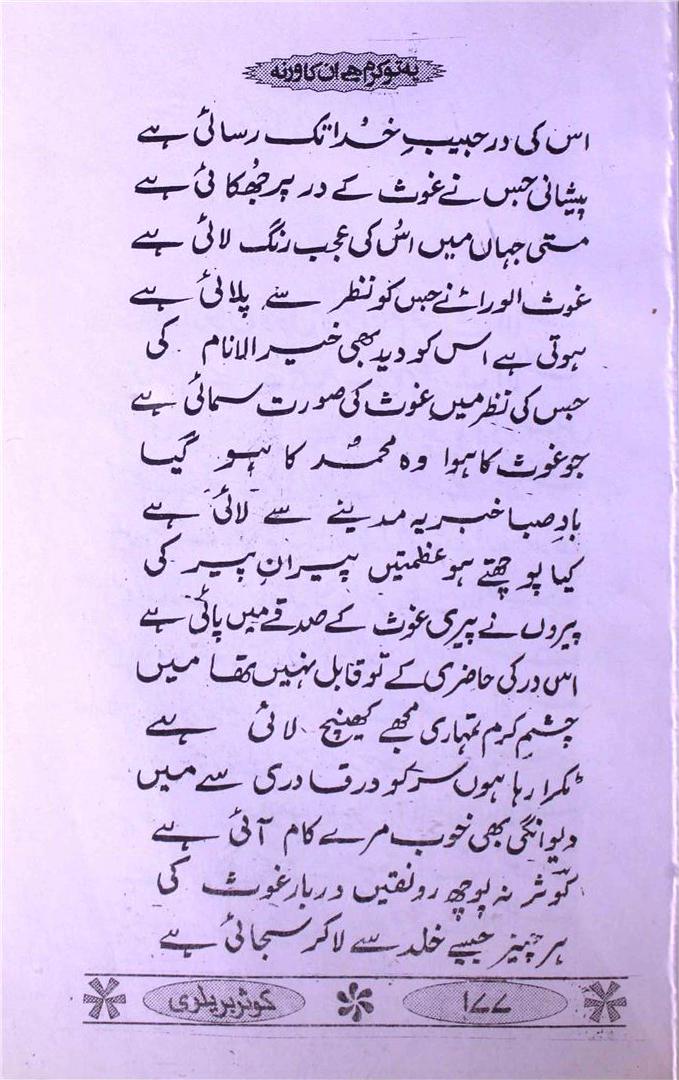 یہ تو کرم ہے ان کا ورنہ
اس کی در حبیبِ خُدا تک رسائی ہے
پیشانی جس نے غوث کے در پر جُھکائی ہے
مستی جہاں میں اسُ کی عجب رنگ لائی ہے
غوث الوراےٰ نے جس کو نظر سے پلائی ہے
ہوتی ہے اس کو دید بھی خیر الانام کی
جس کی نظر میں غوث کی صورت سمائی ہے
جو غوث کا ہوا وہ محمدؐ کا ہو گیا
بادِ صبا خبر یہ مدینے سے لائی ہے
کیا پوچھتے ہو عظمتیں پیرانِ پیر کی
پیروں نے پیری غوث کے صدقے میں پائی ہے
اس در کی حاضری کے تو قابل نہیں تھا میں
چشمِ کرم تمہاری مجھے کھینچ لائی ہے
ٹکرا رہا ہوں سر کو در قادری سے میں
دیوانگی بھی خوب مرے کام آئی ہے
کوثر نہ پوچھ رونقیں دربار غوث کی
ہر چیز جیسے خلد سے لا کر سجائی ہے
۱۷۷
کوثر بریلوی